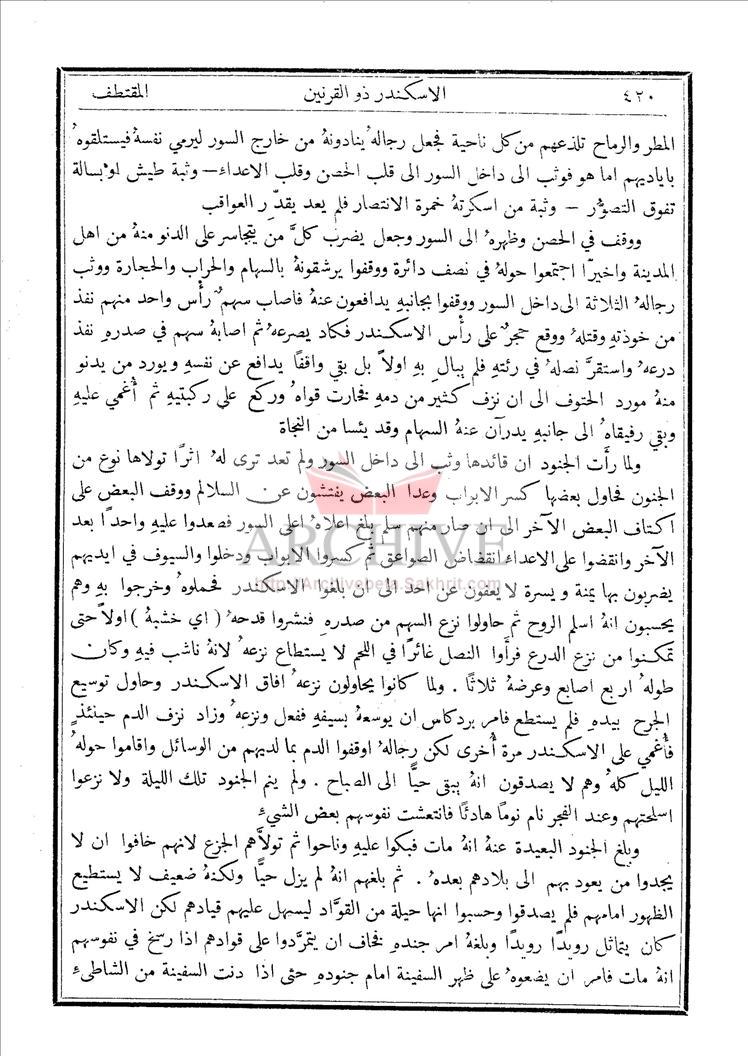 ٤٢٠ الاسكندر ذو القرنين المقتطف
المطر والرماح تلذعهم من كل ناحية فجعل رجاله ينادونهُ من خارج السور ليرمي نفسهُ فيستلقوهُ
باياديهم اما هو فوثب الى داخل السور الى قلب الحصن وقلب الاعداء – وثبة طيش او بسالة
تفوق التصوُّر – وثبة من اسكرتهُ خمرة الانتصار فلم يعد يقدِّر العواقب
ووقف في الحصن وظهرهُ الى السور وجعل يضرب كلَّ من يتجاسر على الدنو منهُ من اهل
المدينة واخيرًا اجتمعوا حولهُ في نصف دائرة ووقفوا يرشقونهُ بالسهام والحراب والحجارة ووثب
رجالهُ الثلاثة الى داخل السور ووقفوا بجانبهِ يدافعون عنهُ فاصاب سهمٌ رأس واحد منهم نفذ
من خوذتهِ وقتلهُ ووقع حجرٌ على رأس الاسكندر فكاد يصرعهُ ثم اصابهُ سهم في صدرهِ نفذ
درعهُ واستقرَّ نصلهُ في رئتهِ فلم يبالِ بهِ اولاً بل بقي واقفًا يدافع عن نفسهِ ويورد من يدنو
منهُ مورد الحتوف الى ان نزف كثير من دمهِ فخارت قواهُ وركع على ركبتيهِ ثم أُغمي عليهِ
وبقي رفيقاهُ الى جانبهِ يدرآن عنهُ السهام وقد يئسا من النجاة
ولما رأَت الجنود ان قائدها وثب الى داخل السور ولم تعد ترى لهُ اثرًا تولاها نوع من
الجنون فحاول بعضها كسر الابواب وعدا البعض يفتشون عن السلالم ووقف البعض على
اكتاف البعض الآخر الى ان صار منهم سلم بلغ اعلاهُ اعلى السور فصعدوا عليهِ واحدًا بعد
الآخر وانقضوا على الاعداء انقضاض الصواعق ثم كسروا الابواب ودخلوا والسيوف في ايديهم
يضربون بها يمنة و يسرة لا يعفون عن احد الى ان بلغوا الاسكندر فحملوهُ وخرجوا بهِ وهم
يحسبون انهُ اسلم الروح ثم حاولوا نزع السهم من صدرهِ فنشروا قدحهُ ( اي خشبهُ ) اولاً حتى
تمكنوا من نزع الدرع فرأَوا النصل غائرًا في اللحم لا يستطاع نزعهُ لانهُ ناشب فيهِ وكان
طولهُ اربع اصابع وعرضهُ ثلاثًا . ولما كانوا يحاولون نزعهُ افاق الاسكندر وحاول توسيع
الجرح بيدهِ فلم يستطع فامر بردكاس ان يوسعهُ بسيفهِ ففعل ونزعهُ وزاد نزف الدم حينئذٍ
فأُغمي على الاسكندر مرة أُخرى لكن رجالهُ اوقفوا الدم بما لديهم من الوسائل واقاموا حولهُ
الليل كلهُ وهم لا يصدقون انهُ يبقى حيًّا الى الصباح . ولم ينم الجنود تلك الليلة ولا نزعوا
اسلحتهم وعند الفجر نام نومًا هادئًا فانتعشت نفوسهم بعض الشيءِ
وبلغ الجنود البعيدة عنهُ انهُ مات فبكوا عليهِ وناحوا ثم تولاَّهم الجزع لانهم خافوا ان لا
يجدوا من يعود بهم الى بلادهم بعدهُ . ثم بلغهم انهُ لم يزل حيًّا ولكنهُ ضعيف لا يستطيع
الظهور امامهم فلم يصدقوا وحسبوا انها حيلة من القوَّاد ليسهل عليهم قيادهم لكن الاسكندر
كان يتماثل رويدًا رويدًا وبلغهُ امر جندهِ فخاف ان يتمرَّدوا على قوادهم اذا رسخ في نفوسهم
انهُ مات فامر ان يضعوهُ على ظهر السفينة امام جنودهِ حتى اذا دنت السفينة من الشاطىءِ
ARCHIVE
http://Archivebeta.Sakhrit.com